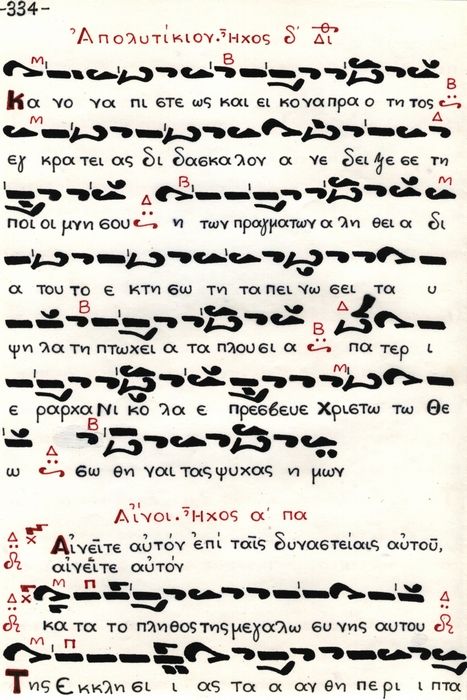 -334-
Ἀπολυτίκιον. Ἦχος δ´ Δι
Κα νο να πι στε ως και ει κο να πρα ο τη τος
εγ κρα τει ας δι δα σκα λον α νε δει ξε σε τη
ποι οι μνη σου η των πραγμα των α λη θει α δι
α του το ε κτη σω τη τα πει νω σει τα υ
ψη λα τη πτωχει α τα πλου σι α πα τερ ι
ε ραρχα Νι κο λα ε πρεσβευε Χριστω τω Θε
ω σω θη ναι τας ψυχας η μων
Αἶνοι. Ἦχος α´ πα
Αἰνεῖτε αὐτόν ἐπί ταῖς δυναστείαις αὐτοῦ,
αἰνεῖτε αὐτόν
κα τα το πληθος της μεγαλω συ νης αυτου
Της Εκκλη σι ι ας τα α αν θη πε ρι ι πτα